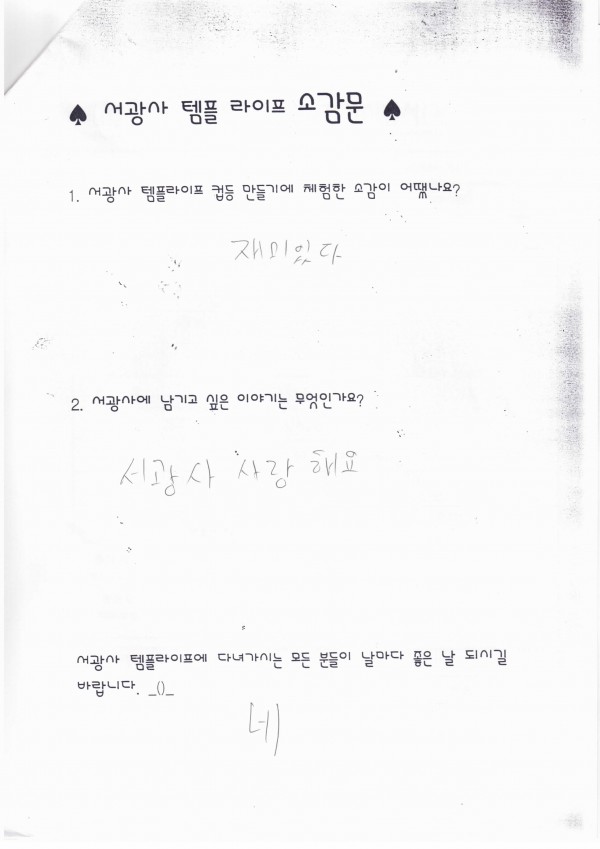 ♠ 서광사 템플 라이프 소감문 ♠
1. 서광사 템플라이프 컵등 만들기에 체험한 소감이 어땠나요?
재미있다
2. 서광사에 남기고 싶은 이야기는 무엇인가요?
서광사 사랑 해요
서광사 템플라이프에 다녀가시는 모든 분들이 날마다 좋은 날 되시길
바랍니다. _()_
네